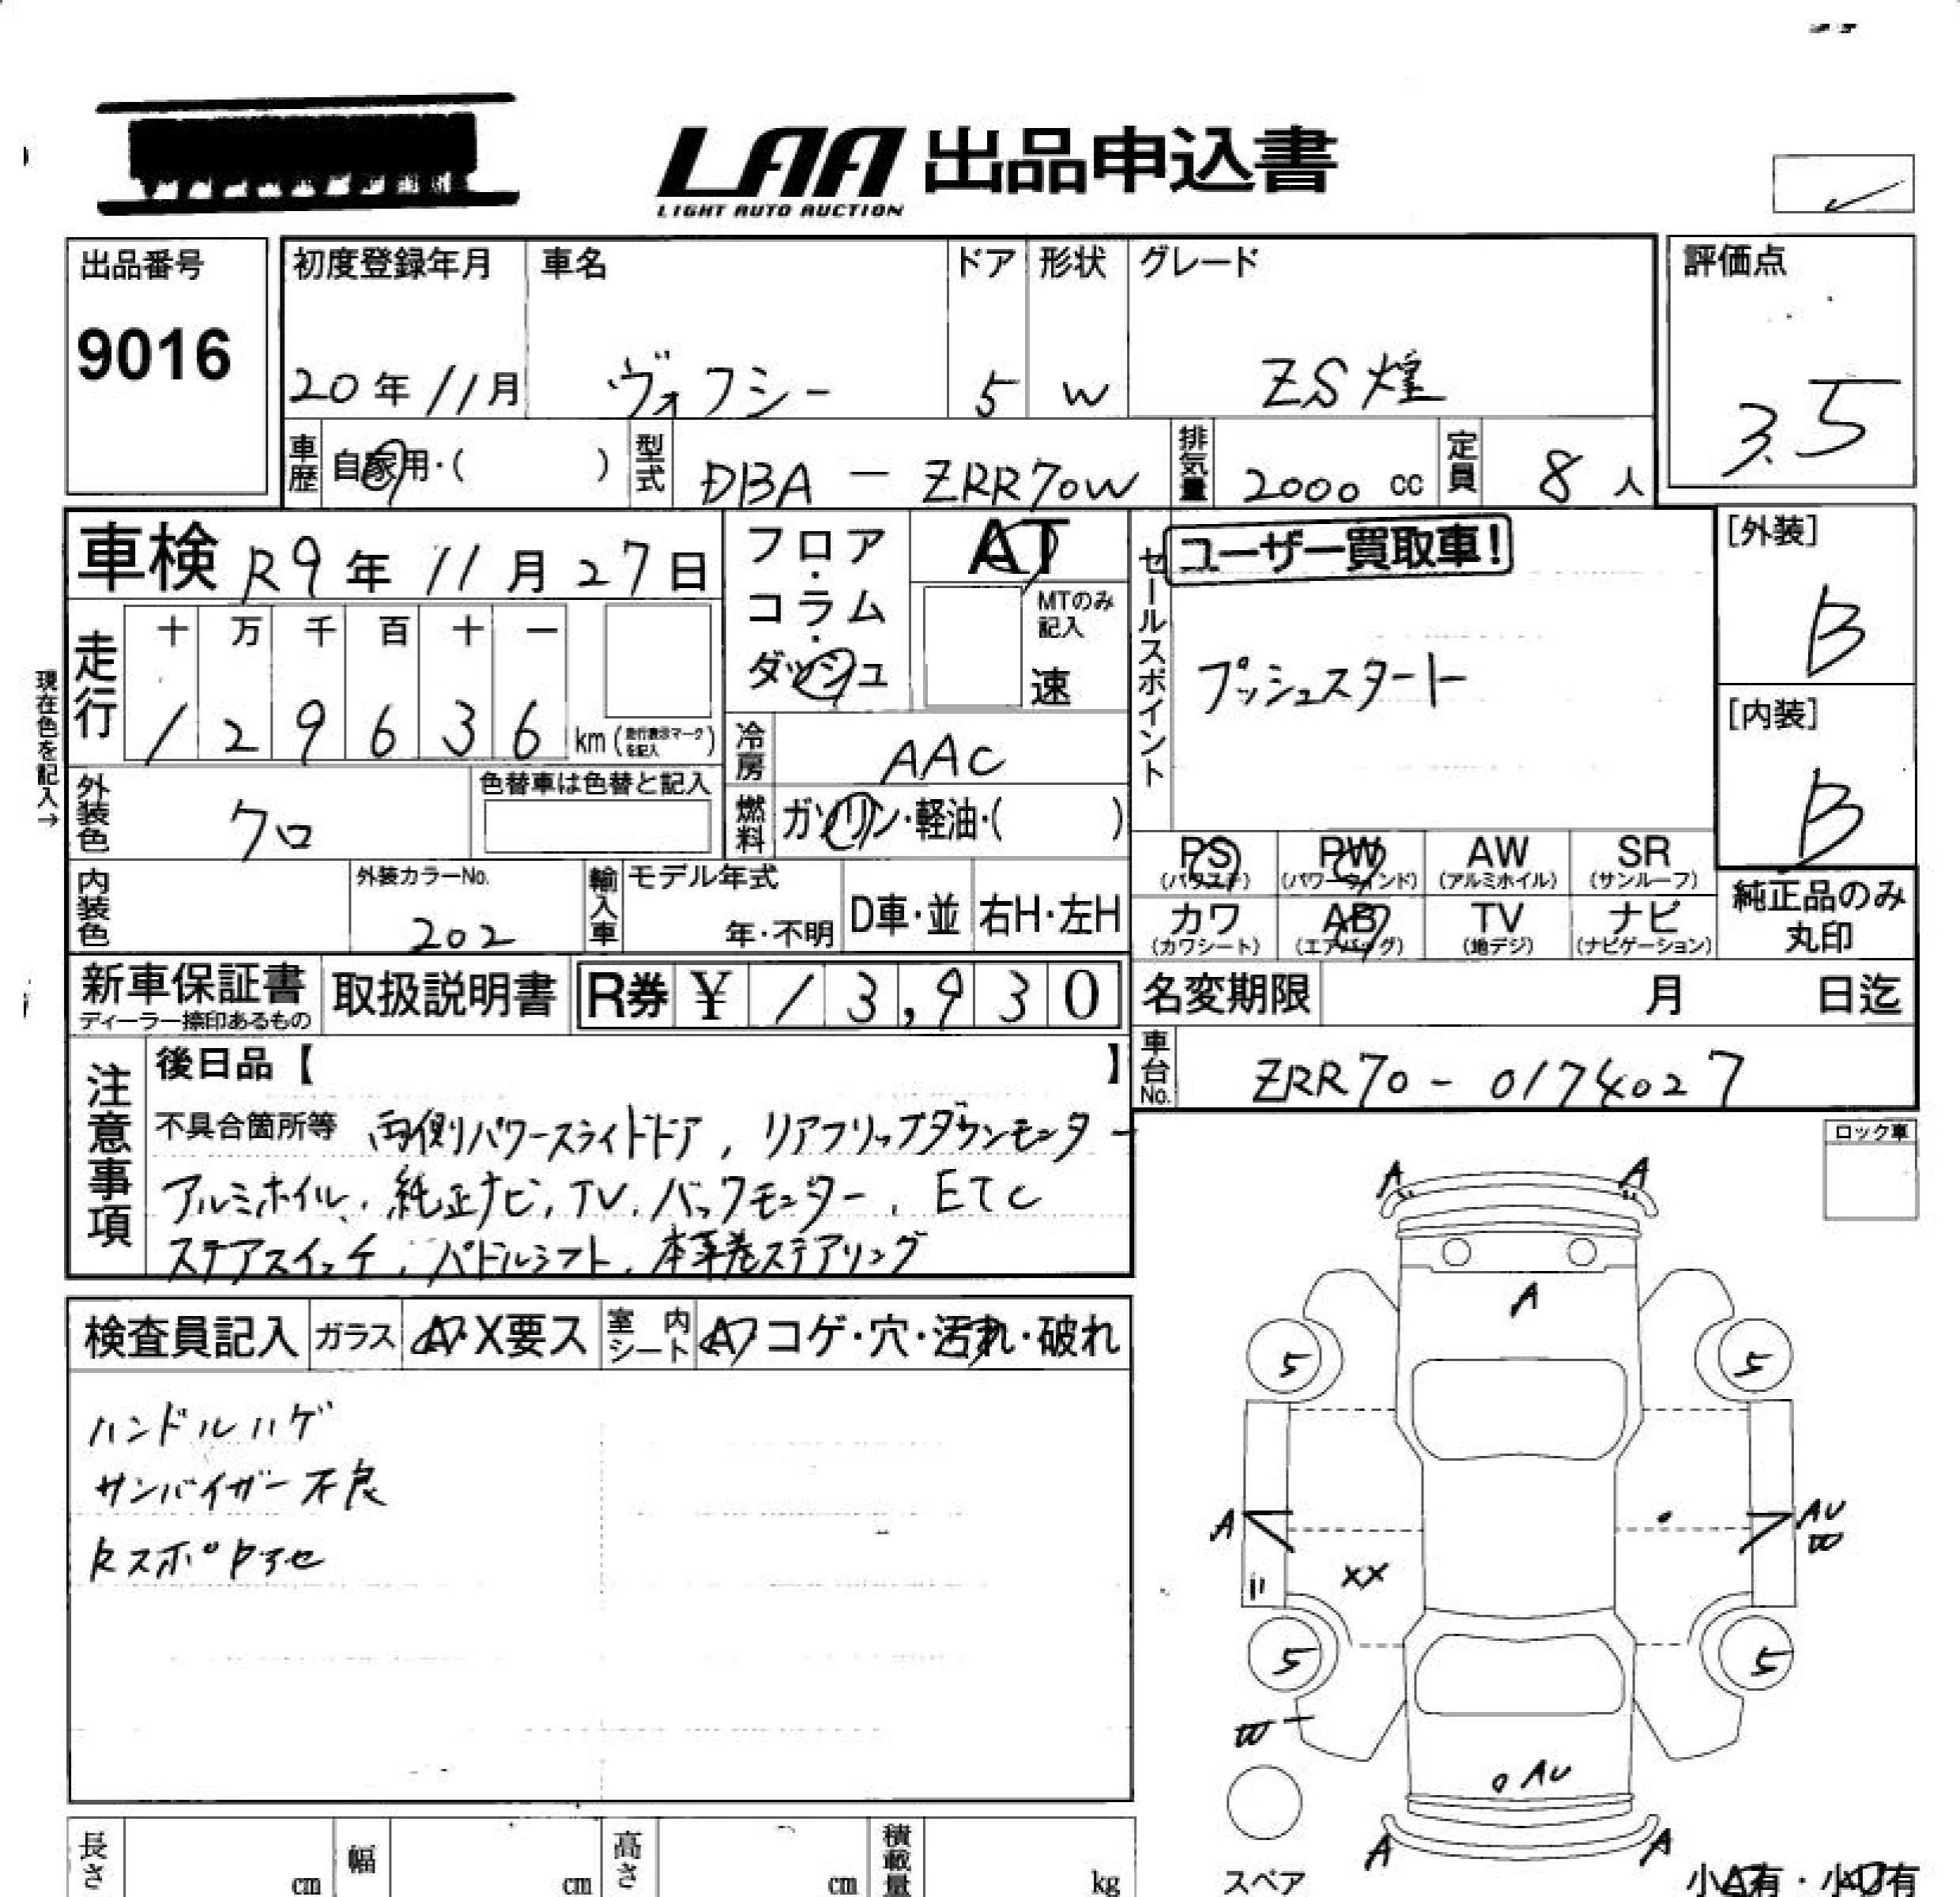 LAA 出品申込書
LIGHT AUTO AUCTION
出品番号
9016
初度登録年月
20年11月
車名
ヴォクシー
ドア
5
形状
W
グレード
ZS煌
評価点
3.5
車歴
自家用・( )
型式
DBA - ZRR70W
排気量
2000 cc
定員
8 人
車検 R9年 11月 27日
フロア・コラム・ダッシュ
AT
MTのみ記入
速
セールスポイント
ユーザー買取車!
プッシュスタート
[外装]
B
[内装]
B
現在色を記入→
走行
十 万 千 百 十 一
1 2 9 6 3 6 km (走行表示マークを記入)
冷房
AAC
燃料
ガソリン・軽油・( )
外装色
クロ
色替車は色替と記入
内装色
外装カラーNo.
202
輸入車
モデル年式
年・不明
D車・並
右H・左H
PS (パワステ)
PW (パワーウィンド)
AW (アルミホイル)
SR (サンルーフ)
カワ (カワシート)
AB (エアバッグ)
TV (地デジ)
ナビ (ナビゲーション)
純正品のみ丸印
新車保証書
ディーラー捺印あるもの
取扱説明書
R券 ¥ 13,930
名変期限 月 日迄
車台No.
ZRR70 - 0174027
注意事項
後日品【 】
不具合箇所等 両側パワースライドドア, リアフリップダウンモニター
アルミホイル, 純正ナビ, TV, バックモニター, ETC
ステアスイッチ, パドルシフト, 本革巻ステアリング
ロック車
検査員記入
ガラス
A・X要ス
室内シート
A コゲ・穴・汚れ・破れ
ハンドルハゲ
サンバイザー不良
A
A
A
5
5
A
AU
W
XX
5
5
W
AU
A
A
スペア
長さ cm
幅 cm
高さ cm
積載量 kg
小A有・小U有